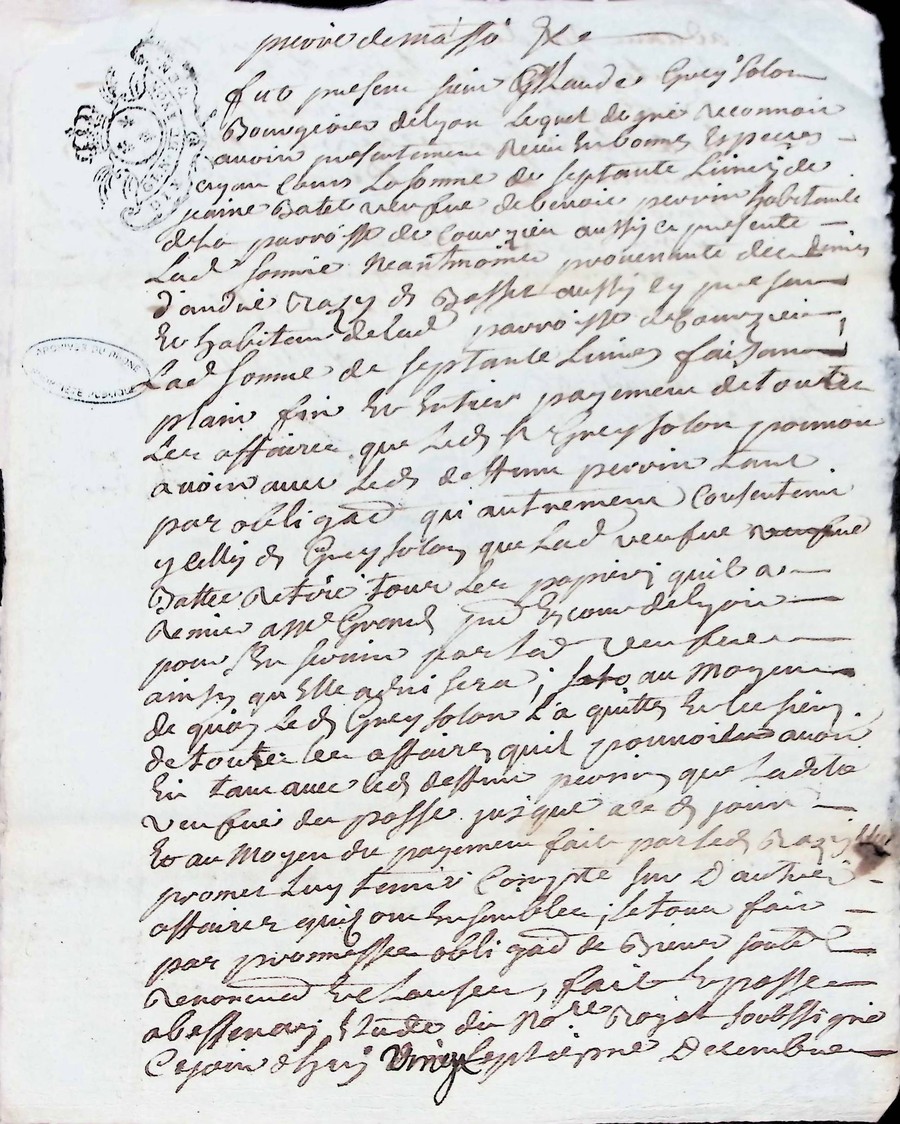 pierre de masso
fut present sieur Claude Greysolon
Bourgeois de lyon lequel de gré reconnoit
avoir presentement Receu En bonnes Especes
ayant Cours La somme de septante Livres de
jeanne Battet veufve de benoit perrin habitante
de la parroisse de Courzieu aussy cy presente
Lad somme Neantmoings provenante des deniers
d'andré Razy du Bosset aussy cy present
Et habitant delad parroisse de Courzieu
Lad somme de septante Livres faisant
plain fin Et Entier payement de toutes
Les affaires que Led sr Greysolon pouvoit
avoir avec Led deffunt perrin tant
par obligaon qu'autrement Consentant
yceluy sr Greysolon que Lad veufve
Battet Retire tous Les papiers qu'il a
Remis a Mre Grand pr Es cour de lyon
pour s'En servir par Lad veufve
ainsy qu'Elle advisera ; au Moyen
de quoy Led Greysolon L'a quitté Et les siens
de toutes les affaires qu'il pouvoit avoir
En tant avec led deffunt perrin que Ladite
veufve du passé jusque a ce d jour
Et au Moyen du payement fait par led Razy
promet Luy tenir Compte sur D'autres
affaires quils ont Ensembles ; le tout fait
par promesse obligaon de Biens soub
Renonciaon Et Clauses, fait Et passé
a bessenay Etude du Nore Royal soubssigné
Cejourdhuy Vingt septiesme Decembre